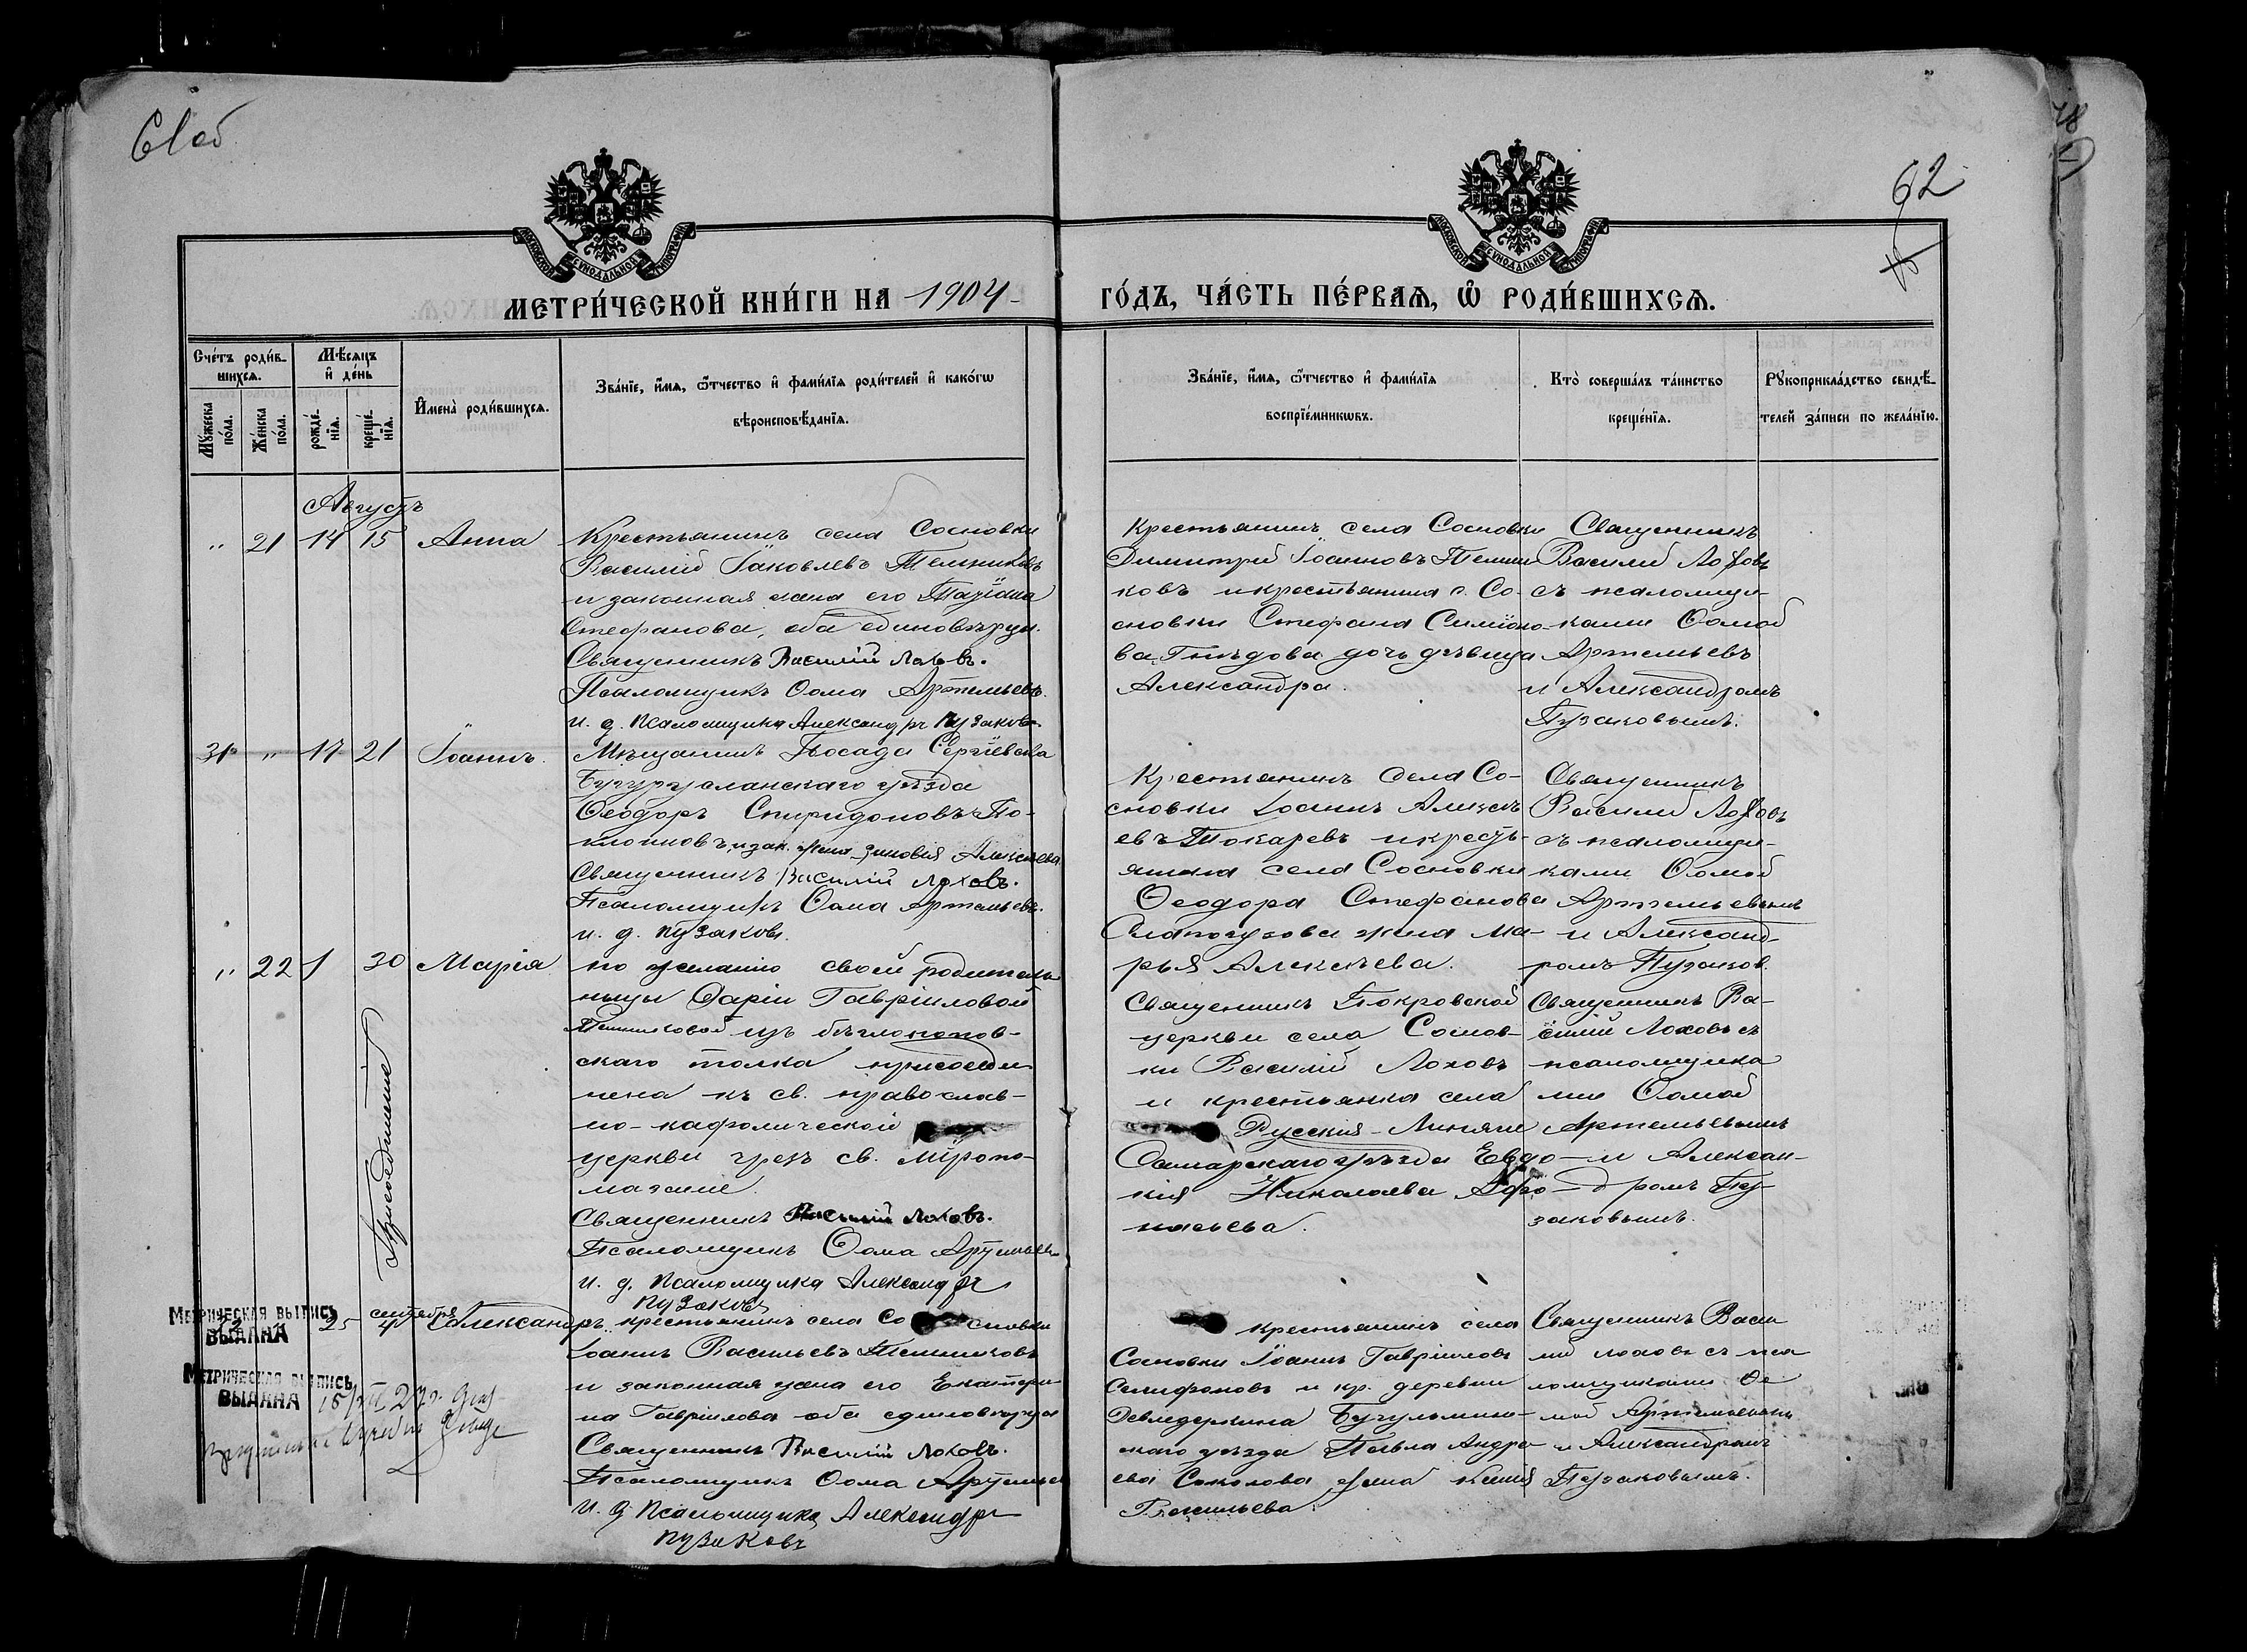 61 об
62
МЕТРИ́ЧЕСКОЙ КНИ́ГИ НА 1904
ГО́ДЪ, ЧА́СТЬ ПЕ́РВАѦ, Ѿ РОДИ́ВШИХСѦ.
Сче́тъ роди́в-
шихсѧ.
Мѣ́сѧцъ
и҆ де́нь
Мꙋ́жеска
по́ла.
Же́нска
по́ла.
рожде́-
нїѧ.
креще́-
нїѧ.
И҆мена̀ роди́вшихсѧ.
Зва́нїе, и҆́мѧ, ѻ҆́тчество и҆ фами́лїѧ роди́телей и҆ како́гѡ
вѣроисповѣ́данїѧ.
Зва́нїе, и҆́мѧ, ѻ҆́тчество и҆ фами́лїѧ
воспрїе́мникѡвъ.
Кто̀ соверша́лъ та́инство
креще́нїѧ.
Рꙋкоприкла́дство свидѣ́-
телей за́писи по жела́нїю.
Августъ
" 21 14 15 Анна
Крестьянинъ села Сосновки
Василій Іаковлевъ Темниковъ
и законная жена его Татіана
Стефанова, оба единовѣрцы.
Священникъ Василій Лоховъ.
Псаломщикъ Ѳома Артемьевъ.
и. д. псаломщика Александръ Пузаковъ.
Крестьянинъ села Сосновки
Димитрій Іоанновъ Темни
ковъ и крестьянина с. Со-
сновки Стефана Симіоно-
ва Гнѣдова дочь дѣвица
Александра.
Священникъ
Василій Лоховъ
съ псаломщи-
ками Ѳомой
Артемьевъ
и Александромъ
Пузаковымъ.
31 " 17 21 Іоаннъ.
Мѣщанинъ Посада Сергіевска
Бугурусланскаго уѣзда
Ѳеодоръ Спиридоновъ По-
и зак. жена Зиновія Алексѣева
Священникъ Василій Лоховъ.
Псаломщикъ Ѳома Артемьевъ.
и. д. Пузаковъ.
Крестьянинъ села Со-
сновки Іоаннъ Алексѣ
евъ Токаревъ и кресть-
янина села Сосновки
Ѳеодора Стефанова
жена Ма-
рья Алексѣева.
Священникъ
Василій Лоховъ
съ псаломщи-
ками Ѳомой
Артемьевымъ
и Александ-
ромъ Пузаков.
" 22 1 30 Марія
Присоединеніе
по желанію своей родитель
ницы Даріи Гавріиловой
Темниковой изъ бѣглопопов-
скаго толка присоеди
нена къ св. православ-
но-каѳолической
церкви чрезъ св. міропо-
мазаніе.
Священникъ Василій Лоховъ.
Псаломщикъ Ѳома Артемьевъ
и. д. псаломщика Александръ
Пузаковъ
Священникъ Покровской
церкви села Соснов-
ки Василій Лоховъ
и крестьянка села
Русскія-Липяги
Самарскаго уѣзда Евдо-
кія Николаева Афа-
насьева.
Священникъ Ва-
силій Лоховъ съ
псаломщика
ми Ѳомой
Артемьевымъ
и Алексан-
дромъ Пу-
заковымъ.
МЕТРИЧЕСКАЯ ВЫПИСЬ
ВЫДАНА
МЕТРИЧЕСКАЯ ВЫПИСЬ
ВЫДАНА
сентября
25 4 Александръ
крестьянинъ села Со сновки
Іоаннъ Васильевъ Темниковъ
и законная жена его Екатери
на Гавріилова оба единовѣрцы
Священникъ Василій Лоховъ.
Псаломщикъ Ѳома Артемьев
И. д псаломщика Александръ
Пузаковъ
крестьянинъ села
Сосновки Іоаннъ Гавріиловъ
и кр. деревни
Бугульмин-
скаго уѣзда Павла Андре-
ева Соколова жена Ксенія
Васильева
Священникъ Васи
лій Лоховъ съ пса
ломщиками Ѳо
мой Артемьевымъ
и Александромъ
Пузаковымъ.